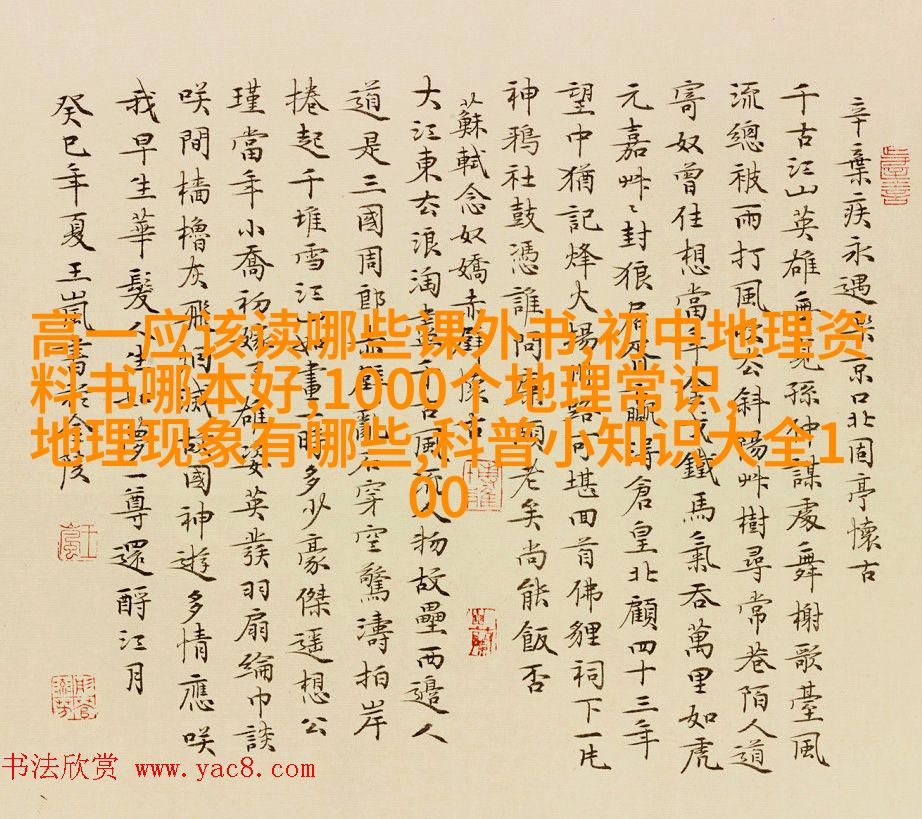 高一应该读哪些课外书,初中地理资
料书哪本好,1000个地理常识,
地理现象有哪些,科普小知识大全1
00
辛棄疾永遇樂京口北固亭懷古
千古江山英雄無覓孫仲謀處舞榭歌臺風
流總被雨打風吹去斜陽艸樹尋常巷陌人道
寄奴曾住想當年金戈鐵馬氣吞萬里如虎
元嘉艸〻封狼居胥贏得倉皇北顧四十三年
望中猶記烽火揚州路可堪回首佛貍祠下一片
神鴉社鼓憑誰問廉頗老矣尚能飯否
蘇軾念奴嬌赤壁懷古
大江東去浪淘盡千古風流人物故壘西邊人
道是三國周郎赤壁亂石穿空驚濤拍岸
捲起千堆雪江山如畫一時多少豪傑遥想公
瑾當年小喬初嫁了雄姿英發羽扇綸巾談
咲間檣櫓灰飛烟滅故國神遊多情應咲
我早生華髮人生如夢一尊還酹江月
癸巳年夏王嵐書於金陵
书法欣赏 www.yac8.com